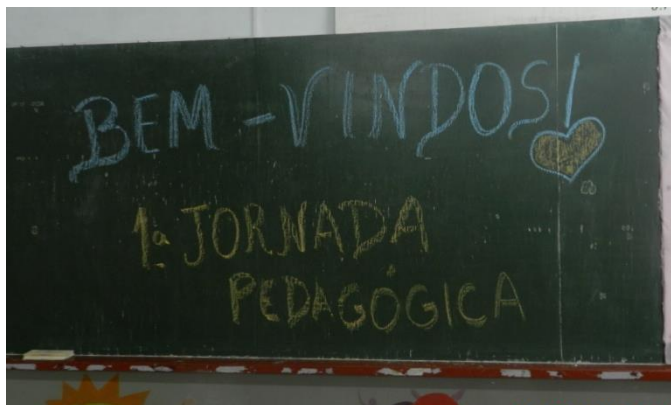 BEM-VINDOS!
1ª JORNADA
PEDAGÓGICA